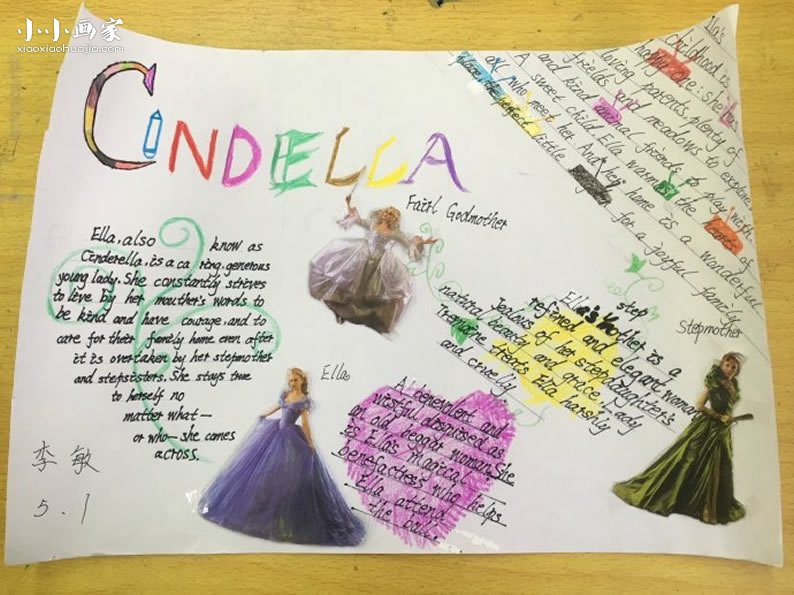 小小画家
xiaoxiaohuajia.com
CINDELLA
Ella's
childhood is
happy one: she has
loving parents, plenty of
friends and meadows to explore,
and kind animal friends to play with.
A sweet child, Ella warms the hearts of
all who meet her. And her home is a wonderful
place, the perfect little for a joyful family
Fairl Godmother
Ella, also know as
Cinderella, is a ca ring, generous
young lady. She constantly strives
to live by her mouther's words to
be kind and have courage, and to
care for their family home even after
it is overtaken by her stepmother
and stepsisters. She stays true
to herself no
matter what—
or who— she comes
across.
step
Ella's mother, is a
refined and elegant woman
Jealous of her stepdaughter's
natural beauty and grace. Lady
Tremaine treats Ella harshly
and cruely
Stepmother
Ella
A benevolent and
wistful disguised as
an old beggar woman. She
is Ella's magical
benefactress who helps
Ella attend
the ball.
李敏
5.1